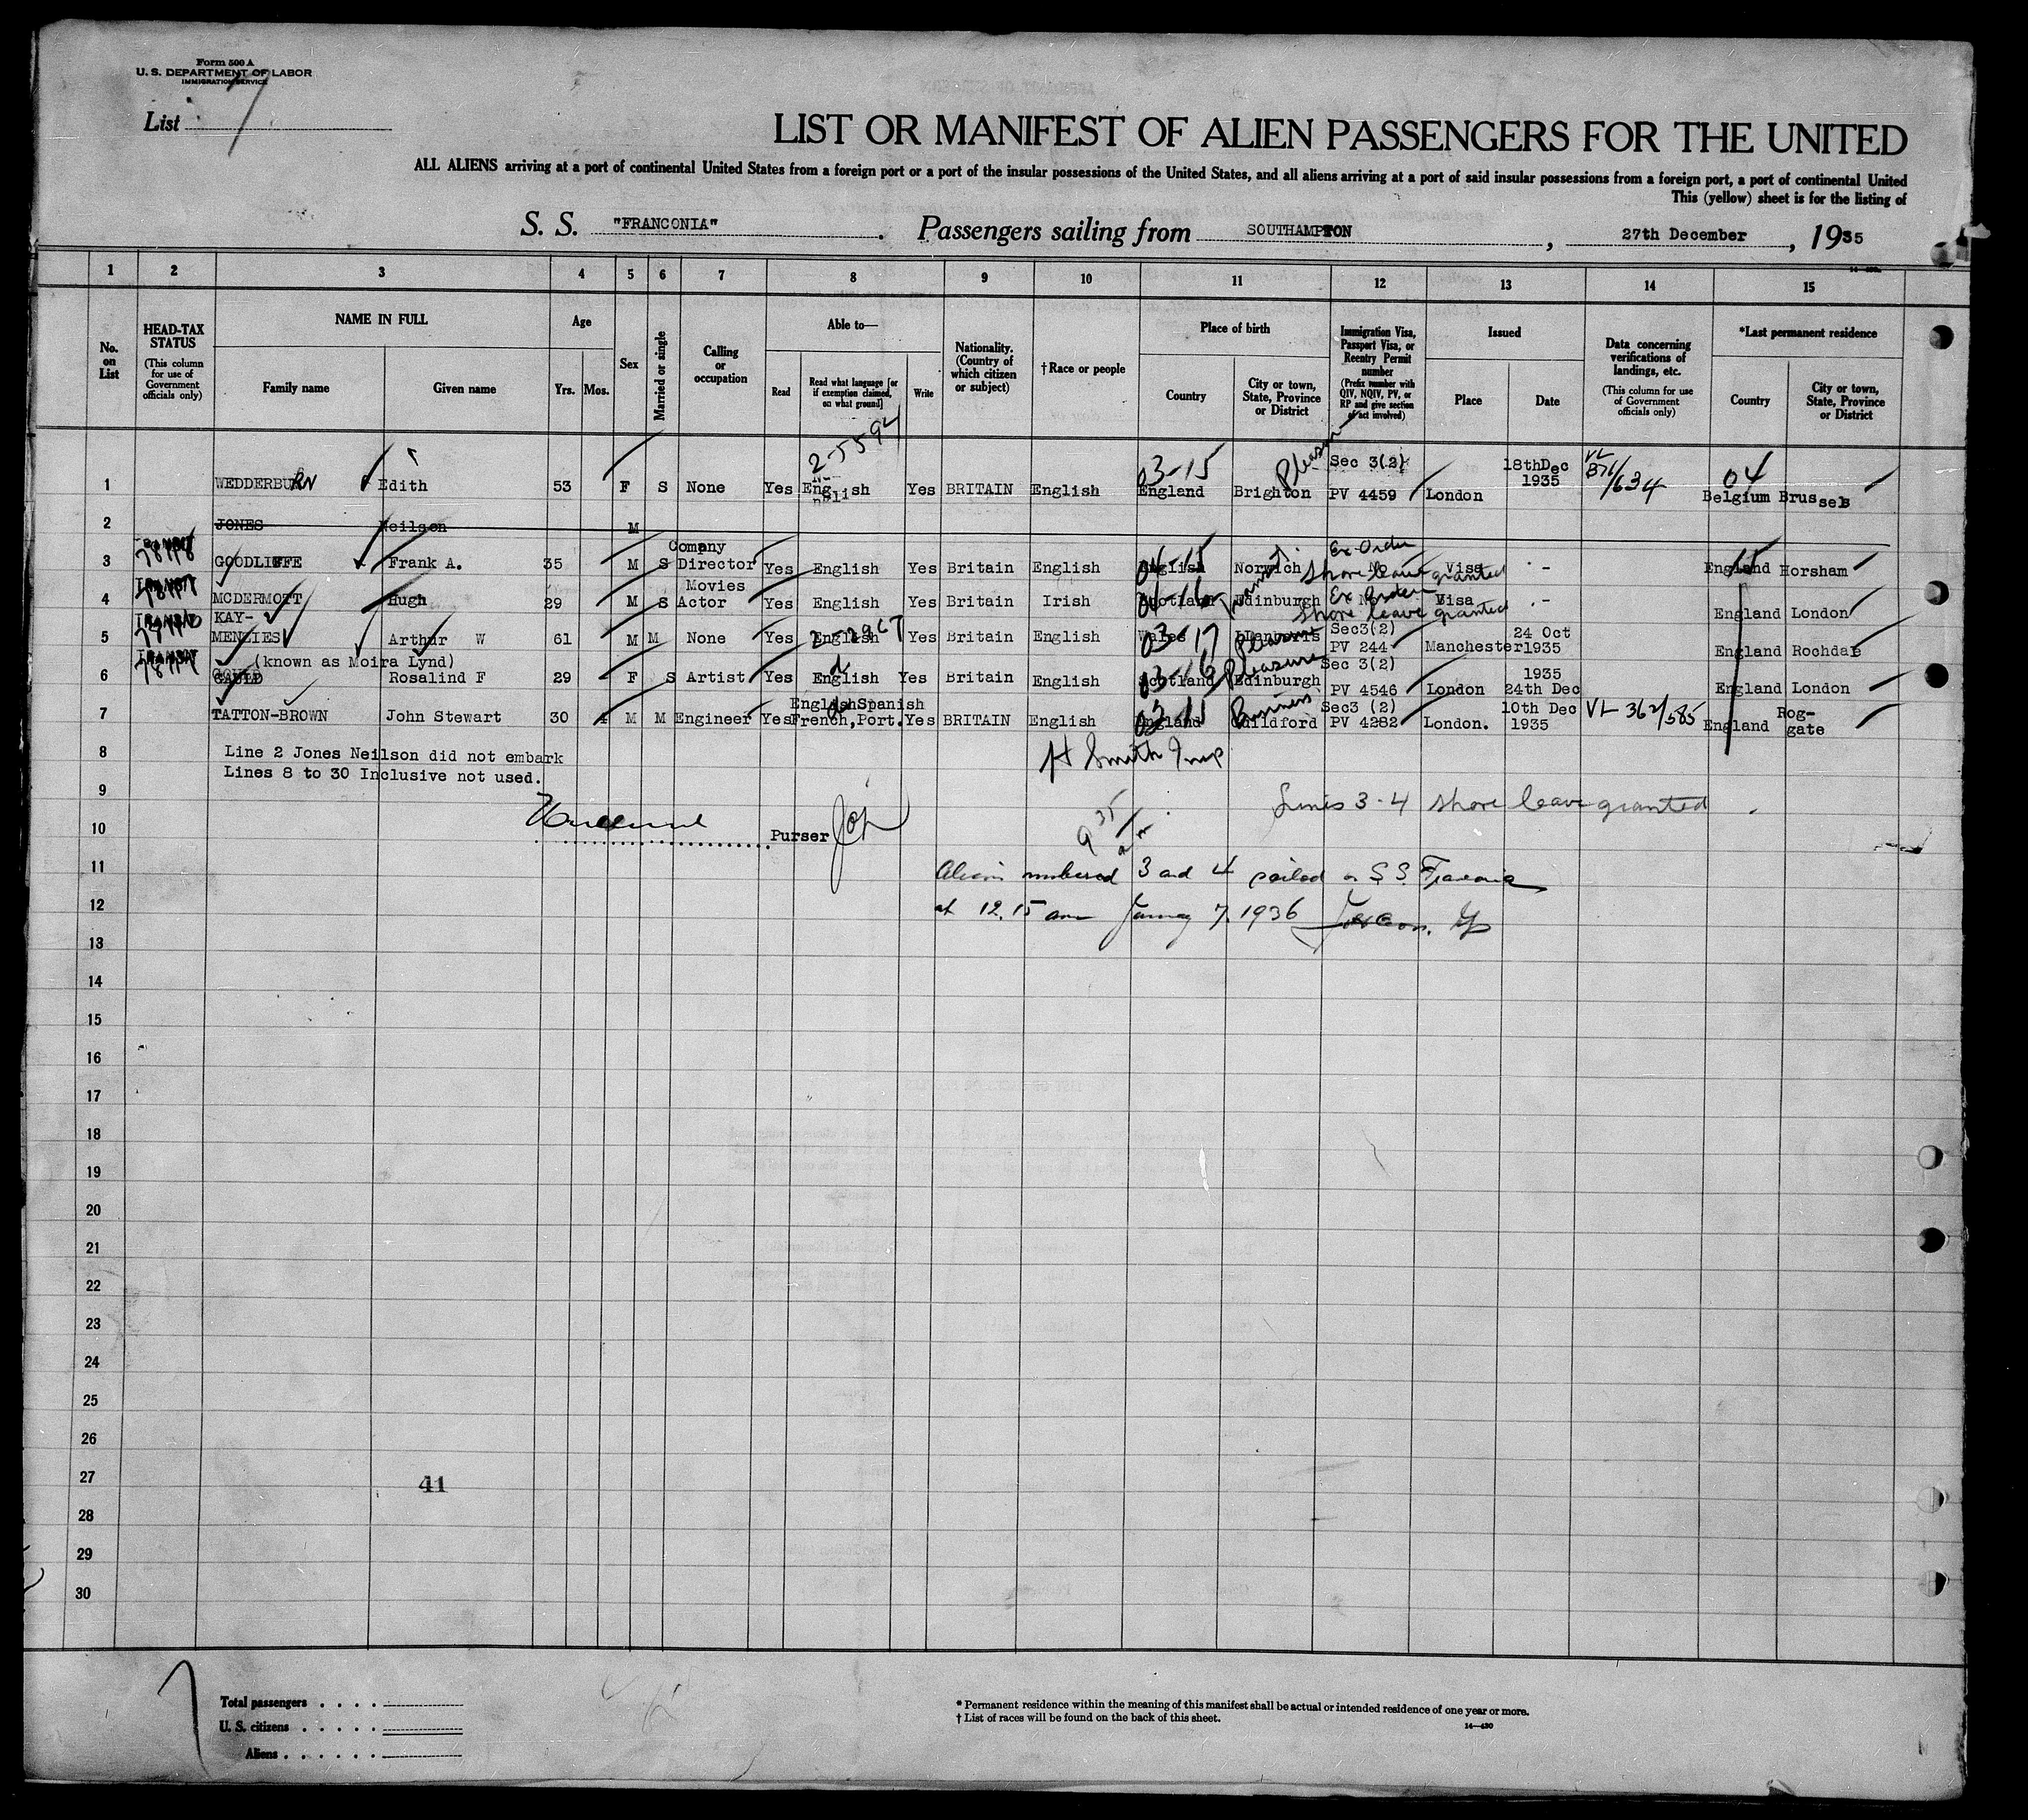 Form 500 A
U. S. DEPARTMENT OF LABOR
IMMIGRATION SERVICE
List 7
LIST OR MANIFEST OF ALIEN PASSENGERS FOR THE UNITED
ALL ALIENS arriving at a port of continental United States from a foreign port or a port of the insular possessions of the United States, and all aliens arriving at a port of said insular possessions from a foreign port, a port of continental United
This (yellow) sheet is for the listing of
S. S. "FRANCONIA" . Passengers sailing from SOUTHAMPTON , 27th December , 1935
1 2 3 4 5 6 7 8 9 10 11 12 13 14 15
No. on List
HEAD-TAX STATUS (This column for use of Government officials only)
NAME IN FULL
Family name Given name
Age
Yrs. Mos.
Sex
Married or single
Calling or occupation
Able to—
Read Read what language [or if exemption claimed, on what ground] Write
Nationality. (Country of which citizen or subject)
†Race or people
Place of birth
Country City or town, State, Province or District
Immigration Visa, Passport Visa, or Reentry Permit number (Prefix number with QIV, NQIV, PV, or RP and give section of act involved)
Issued
Place Date
Data concerning verifications of landings, etc. (This column for use of Government officials only)
*Last permanent residence
Country City or town, State, Province or District
2-5594 03-15 Pleasure Sec 3(2) 18thDec 1935 VL 871/634 04
1 WEDDERBURN Edith 53 F S None Yes English Yes BRITAIN English England Brighton PV 4459 London Belgium Brussels
2 JONES Neilson M
TRANSIT Company Ex Order
3 GOODLIFFE Frank A. 35 M S Director Yes English Yes Britain English English Norwich No Visa - England Horsham
04-15 shore leave granted 15
TRANSIT Movies Ex Order
4 MCDERMOTT Hugh 29 M S Actor Yes English Yes Britain Irish Scotland Edinburgh No Visa - England London
04-16 shore leave granted
TRANSIT KAY- Sec3(2) 24 Oct
5 MENZIES Arthur W 61 M M None Yes English Yes Britain English Wales PV 244 Manchester 1935 England Rochdale
03-17 Pleasure
TRANSIT (known as Moira Lynd) Sec 3(2) 1935
6 GAULD Rosalind F 29 F S Artist Yes English Yes Britain English Scotland Edinburgh PV 4546 London 24th Dec England London
03-16 Pleasure
English Spanish Sec3 (2) 10th Dec VL 362/585 Rog-
7 TATTON-BROWN John Stewart 30 4 M M Engineer Yes French, Port. Yes BRITAIN English England Guildford PV 4282 London. 1935 England gate
03-11 Business
8 Line 2 Jones Neilson did not embark H Smith Insp
Lines 8 to 30 Inclusive not used.
9 Lines 3-4 shore leave granted
10 Purser
9 35 am
11 Aliens numbered 3 and 4 sailed on S S. Franconia
12 at 12.15 am January 7, 1936
13
14
15
16
17
18
19
20
21
22
23
24
25
26
27 41
28
29
30
7
Total passengers . . . .
U. S. citizens . . . . .
Aliens . . . . . .
* Permanent residence within the meaning of this manifest shall be actual or intended residence of one year or more.
† List of races will be found on the back of this sheet.
14—430